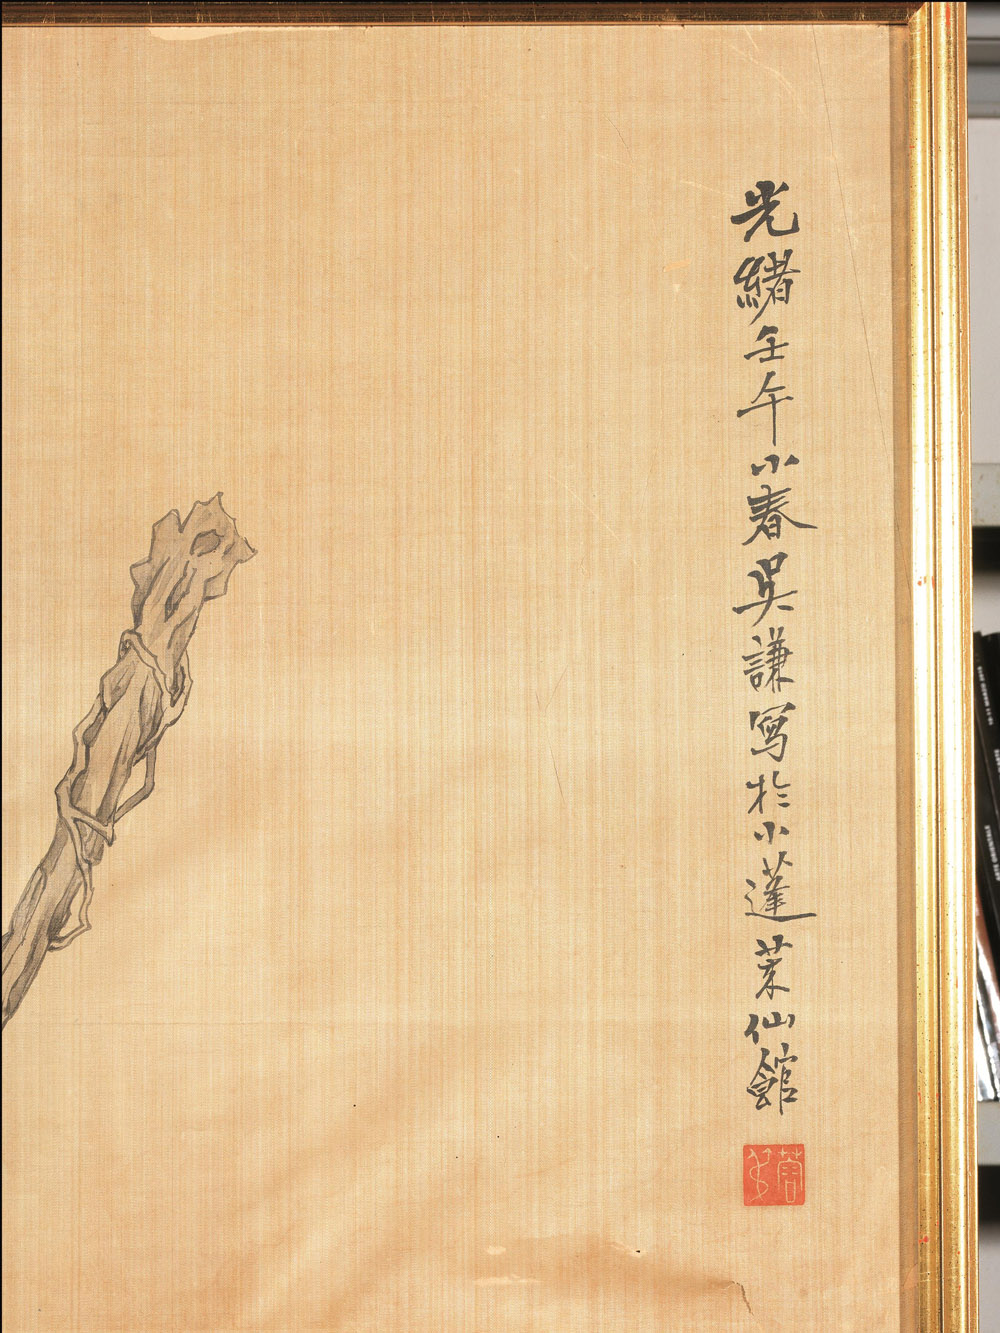 光緒壬午小春吳謙寫於小蓬萊仙館